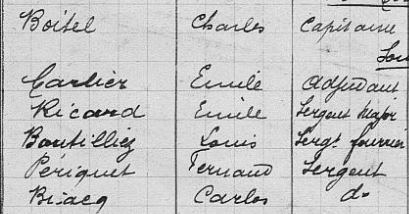 Boitel Charles Capitaine
Carlier Emile Adjudant
Ricard Emile Sergent Major
Boutilliez Louis Sergt fourrier
Périquet Fernand Sergent
Bisacq Carlos do